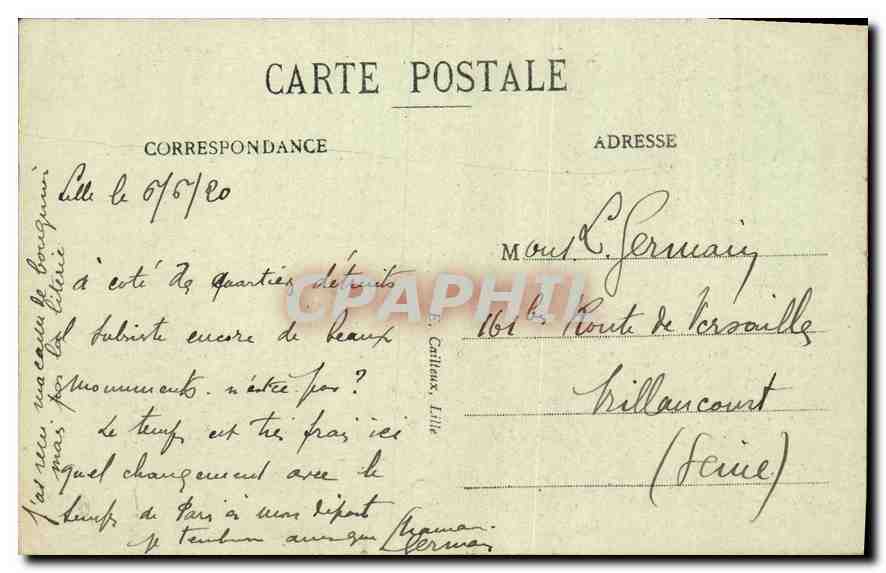 CARTE POSTALE
CORRESPONDANCE
ADRESSE
Lille le 6/6/20
à coté de quartiers détruits
il subsiste encore de beaux
monuments. n'est ce pas?
Le temps est très frais ici
quel changement avec le
temps de Paris à mon départ
je
Germain
j'ai reçu de
mais pas la literie
E. Cailteux, Lille
Monsr L. Germain
161 bis Route de Versailles
Billancourt
(Seine)
CPAPHIL